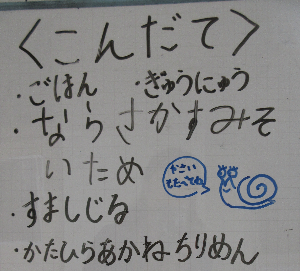 ＜こんだて＞
・ごはん ・ぎゅうにゅう
・ならさかすみそ
いため
・すましじる
・かたひらあかねちりめん
やさい
もたべてね